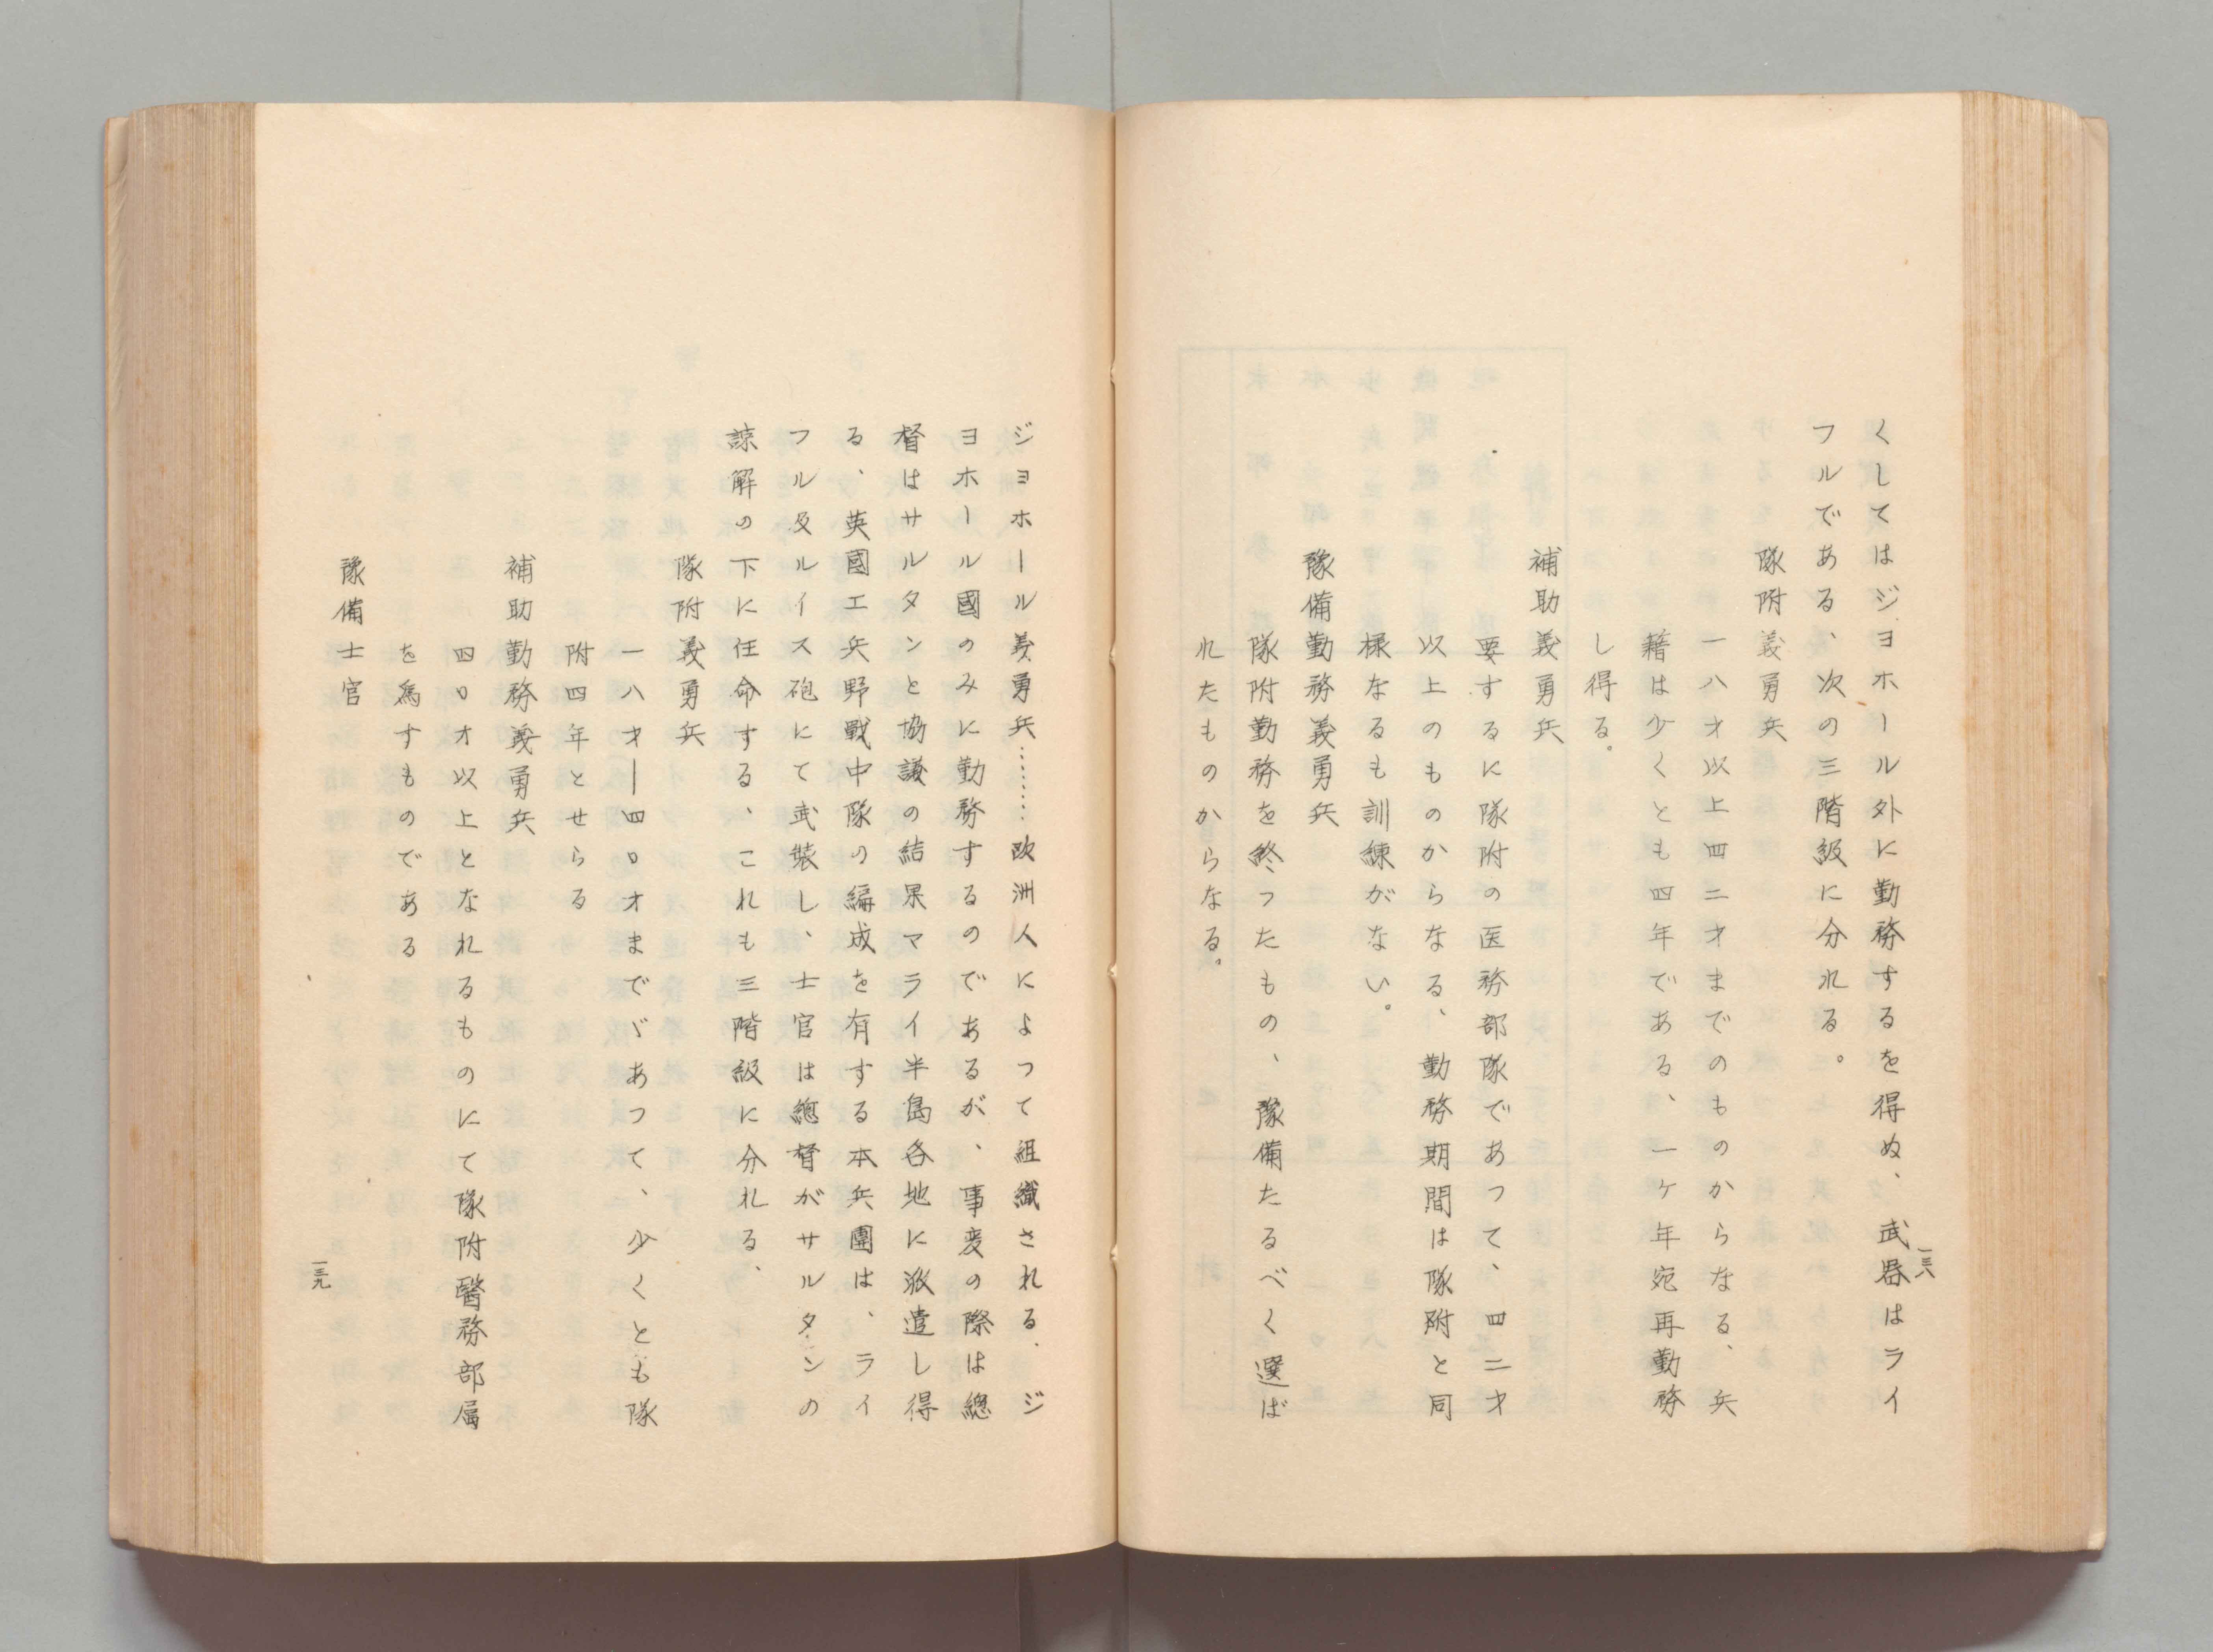 くしてはジヨホール外に勤務するを得ぬ、武器はライ
フルである、次の三階級に分れる。
隊附義勇兵
一八才以上四二才までのものからなる、兵
藉は少くとも四年である、一ケ年宛再勤務
し得る。
補助義勇兵
要するに隊附の医務部隊であつて、四二才
以上のものからなる、勤務期間は隊附と同
様なるも訓練がない。
豫備勤務義勇兵
隊附勤務を終つたもの、豫備たるべく選ば
れたものからなる。
一三八
ジヨホール義勇兵………欧洲人によつて組織される.ジ
ヨホール國のみに勤務するのであるが、事変の際は總
督はサルタンと協議の結果マライ半島各地に派遣し得
る、英國工兵野戰中隊の編成を有する本兵團は、ライ
フル及ルイス砲にて武裝し、士官は總督がサルタンの
諒解の下に任命する、これも三階級に分れる、
隊附義勇兵
一八才―四〇才までゞあつて、少くとも隊
附四年とせらる
補助勤務義勇兵
四〇才以上となれるものにて隊附醫務部属
を為すものである
豫備士官
一三九